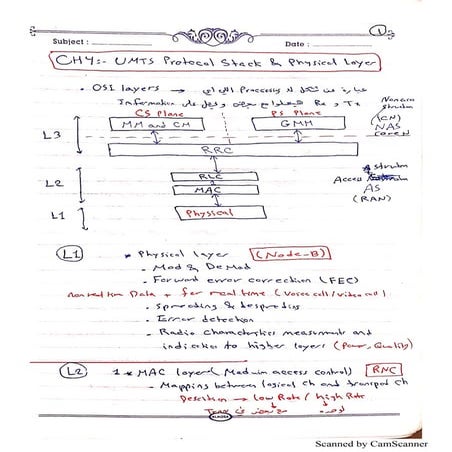 1
Subject : Date :
CH4:- UMTS Protocal Stack & Physical Layer
• OSI layers → Processes
Information Rx و Tx
CS Plane PS Plane
MM and CM GMM
(CN)
NAS
L3
RRC
RLC
L2
MAC
Access stratum
AS
(RAN)
L1
Physical
L1 * Physical layer (Node-B)
- Mod & DeMod
- Forward error correction (FEC)
Data + for real time (voice call/video call)
- Spreading & despreding
- Error detection
- Radio characteristics measurments and
indication to higher layers (Power, Quality)
L2 1* MAC layer (Medium access control) RNC
- Mapping between logical ch and transport ch
→ low Rate / high Rate
Scanned by CamScanner